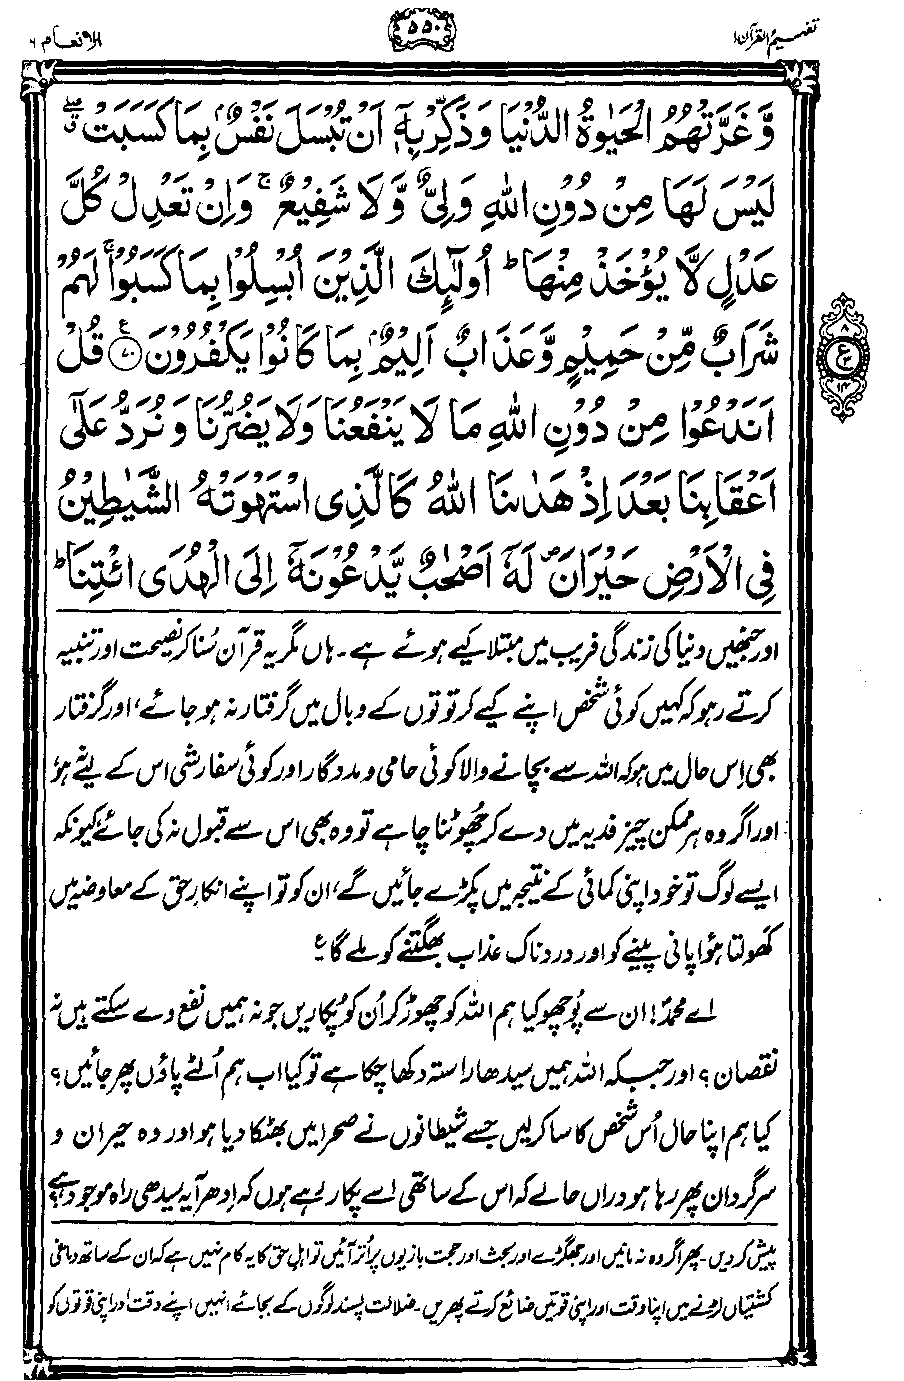 تفہیم القرآن ۱
۵۵۰
الانعام ۶
وَّ غَرَّتْهُمُ الْحَيٰوةُ الدُّنْيَا وَ ذَكِّرْ بِهٖٓ اَنْ تُبْسَلَ نَفْسٌۢ بِمَا كَسَبَتْ ۖۗ
لَيْسَ لَهَا مِنْ دُوْنِ اللّٰهِ وَلِيٌّ وَّ لَا شَفِيْعٌ ۚ وَ اِنْ تَعْدِلْ كُلَّ
عَدْلٍ لَّا يُؤْخَذْ مِنْهَا ؕ اُولٰٓئِكَ الَّذِيْنَ اُبْسِلُوْا بِمَا كَسَبُوْا ۚ لَهُمْ
شَرَابٌ مِّنْ حَمِيْمٍ وَّ عَذَابٌ اَلِيْمٌۢ بِمَا كَانُوْا يَكْفُرُوْنَ ﴿۷۰﴾ قُلْ
۸
ع
۱۴
اَنَدْعُوْا مِنْ دُوْنِ اللّٰهِ مَا لَا يَنْفَعُنَا وَ لَا يَضُرُّنَا وَ نُرَدُّ عَلٰٓى
اَعْقَابِنَا بَعْدَ اِذْ هَدٰىنَا اللّٰهُ كَالَّذِى اسْتَهْوَتْهُ الشَّيٰطِيْنُ
فِى الْاَرْضِ حَيْرَانَ ۪ لَهٗٓ اَصْحٰبٌ يَّدْعُوْنَهٗٓ اِلَى الْهُدَى ائْتِنَا ؕ
اور جنھیں دنیا کی زندگی فریب میں مبتلا کیے ہوئے ہے۔ ہاں مگر یہ قرآن سُنا کر نصیحت اور تنبیہ
کرتے رہو کہ کہیں کوئی شخص اپنے کیے کرتوتوں کے وبال میں گرفتار نہ ہو جائے، اور گرفتار
بھی اِس حال میں ہو کہ اللہ سے بچانے والا کوئی حامی و مددگار اور کوئی سفارشی اس کے لیے نہ ہو،
اور اگر وہ ہر ممکن چیز فدیہ میں دے کر چُھوٹنا چاہے تو وہ بھی اس سے قبول نہ کی جائے، کیونکہ
ایسے لوگ تو خود اپنی کمائی کے نتیجہ میں پکڑے جائیں گے، ان کو تو اپنے انکارِ حق کے معاوضہ میں
کَھولتا ہؤا پانی پینے کو اور دردناک عذاب بھگتنے کو ملے گا؏
اے محمدؐ! ان سے پُوچھو کیا ہم اللہ کو چھوڑ کر اُن کو پُکاریں جو نہ ہمیں نفع دے سکتے ہیں نہ
نقصان؟ اور جبکہ اللہ ہمیں سیدھا راستہ دکھا چکا ہے تو کیا اب ہم اُلٹے پاؤں پھر جائیں؟
کیا ہم اپنا حال اُس شخص کا سا کر لیں جسے شیطانوں نے صحرا میں بھٹکا دیا ہو اور وہ حیران و
سرگردان پھر رہا ہو دراں حالے کہ اس کے ساتھی اسے پکار رہے ہوں کہ اِدھر آ یہ سیدھی راہ موجود ہے؟
پیش کر دیں۔ پھر اگر وہ نہ مانیں اور جھگڑے اور بحث اور حجت بازیوں پر اُتر آئیں تو اہلِ حق کا یہ کام نہیں ہے کہ ان کے ساتھ دماغی
کشتیاں لڑنے میں اپنا وقت اور اپنی قوتیں ضائع کرتے پھریں۔ ضلالت پسند لوگوں کے بجائے انہیں اپنے وقت اور اپنی قوتوں کو